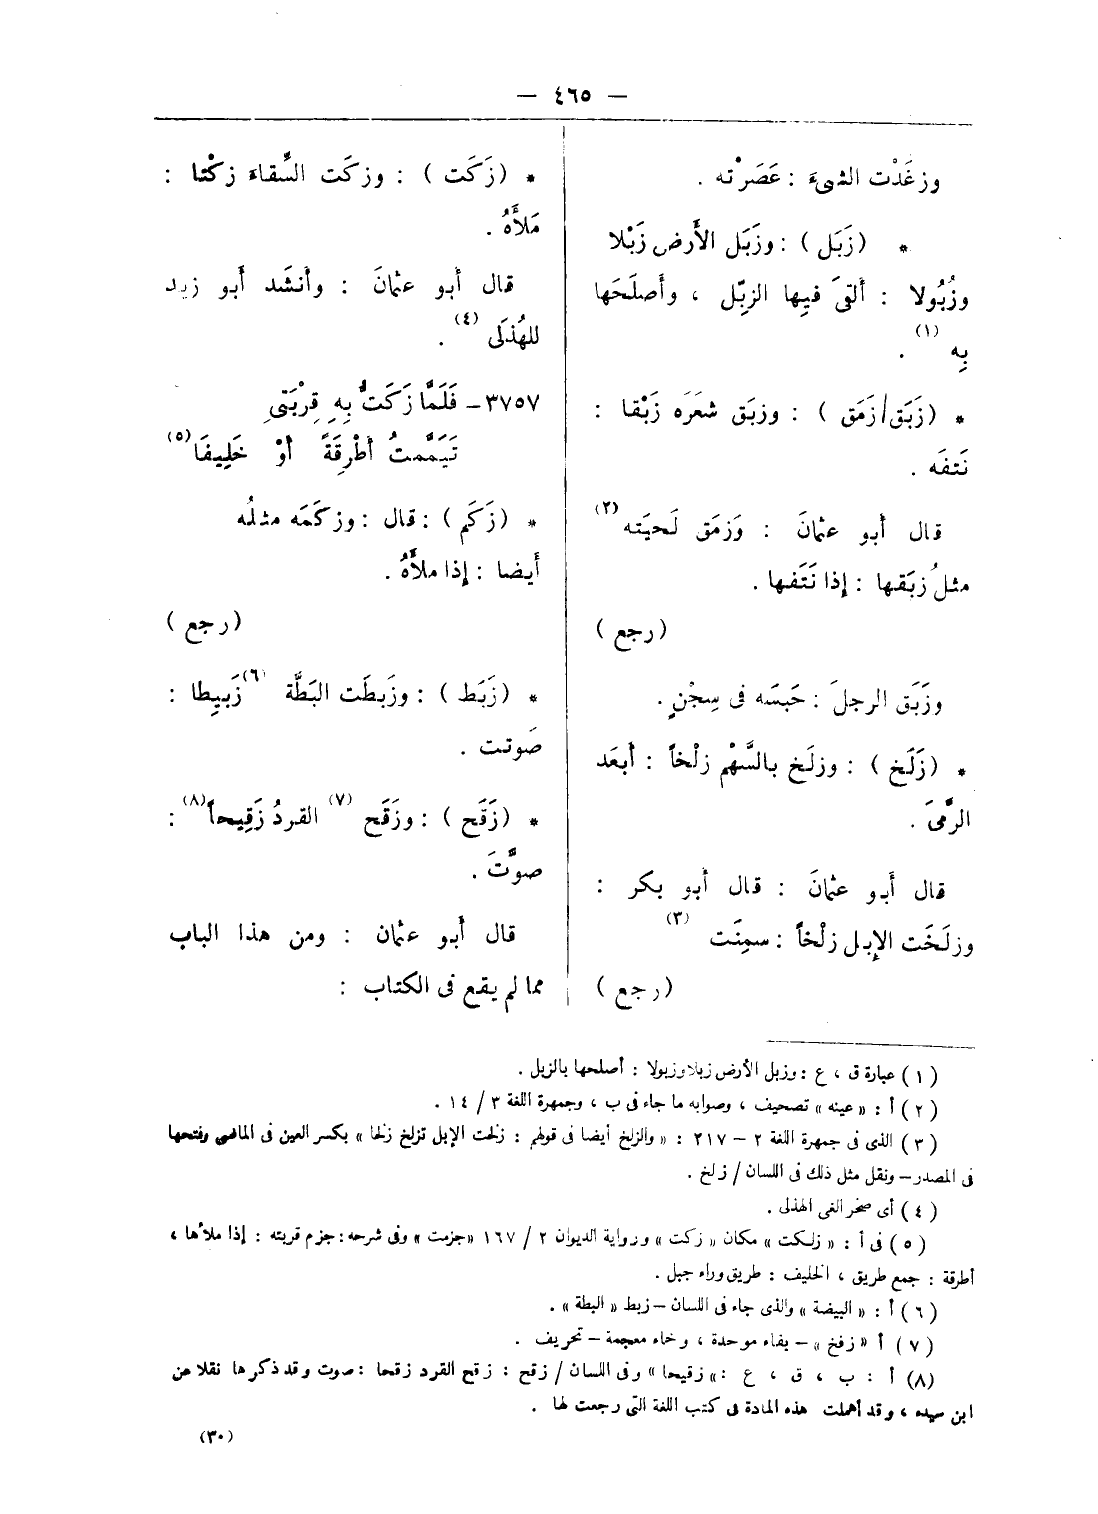 — ٤٦٥ —
وزغَدْت الشىءَ : عَصَرْته .
* ( زَبَل ) : وزَبَل الأَرض زَبْلا
وزُبُولا : أَلقىَ فيِها الزِبّل ، وأَصلَحَها
بِه (١) .
* ( زَبَق/زَمَق ) : وزبَق شعَرَه زَبْقا :
نَتفَه .
قال أَبو عثمانَ : وَزمَق لَحيَته (٢)
مثلُ زبَقها : إذا نَتَفها .
( رجع )
وزَبَق الرجلَ : حَبسَه فى سِجْنٍ .
* ( زَلَخ ) : وزلَخ بالسَّهْم زلْخاً : أَبعَد
الرَّمىَ .
قال أَبو عثمانَ : قال أَبو بكر :
وزلَخَت الإبل زلْخاً : سمِنَت (٣)
( رجع )
* ( زَكَت ) : وزكَت السِّقاءَ زكْتا :
مَلأَهُ .
قال أَبو عثمانَ : وأَنشَد أَبو زيد
للهُذَلى (٤) .
٣٧٥٧ـ فَلَمَّا زَكَتُّ بِهِ قِرْبَتىِ
تَيَمَّمتُ أَطْرِقَةً أَوْ خَلِيفَا (٥)
* ( زَكَم ) : قال : وزكَمَه مثلُه
أَيضا : إذا ملأَهُ .
( رجع )
* ( زَبَط ) : وزَبطَت البَطَّة (٦) زَبيِطا :
صَوتت .
* ( زَقَح ) : وزَقَح (٧) القردُ زَقِيحاً (٨) :
صوَّتَ .
قال أَبو عثمان : ومن هذا الباب
مما لم يقع فى الكتاب :
( ١ ) عبارة ق ، ع : وزبل الأرض زبلا وزبولا : أصلحها بالزبل .
( ٢ ) أ : « عينه » تصحيف ، وصوابه ما جاء فى ب ، وجمهرة اللغة ٣ / ١٤ .
( ٣ ) الذى فى جمهرة اللغة ٢ – ٢١٧ : « والزلخ أيضا فى قولهم : زلخت الإبل تزلخ زلخا » بكسر العين فى الماضى وفتحها
فى المصدر – ونقل مثل ذلك فى اللسان / زلخ .
( ٤ ) أى صخر الغى الهذلى .
( ٥ ) فى أ : « زلكت » مكان « زكت » ورواية الديوان ٢ / ١٦٧ «جزمت» وفى شرحه : جزم قربته : إذا ملأها ،
أطرقة : جمع طريق ، الخليف : طريق وراء جبل .
( ٦ ) أ : « البيضة » والذى جاء فى اللسان – زبط « البطة » .
( ٧ ) أ « زفخ » – بفاء موحدة ، وخاء معجمة – تحريف .
(٨) أ : ب ، ق ، ع : « زقيحا » وفى اللسان / زقح : زقح القرد زقحا : صوت وقد ذكرها نقلا عن
ابن سيده ، وقد أهملت هذه المادة فى كتب اللغة التى رجعت لها .
(٣٠)